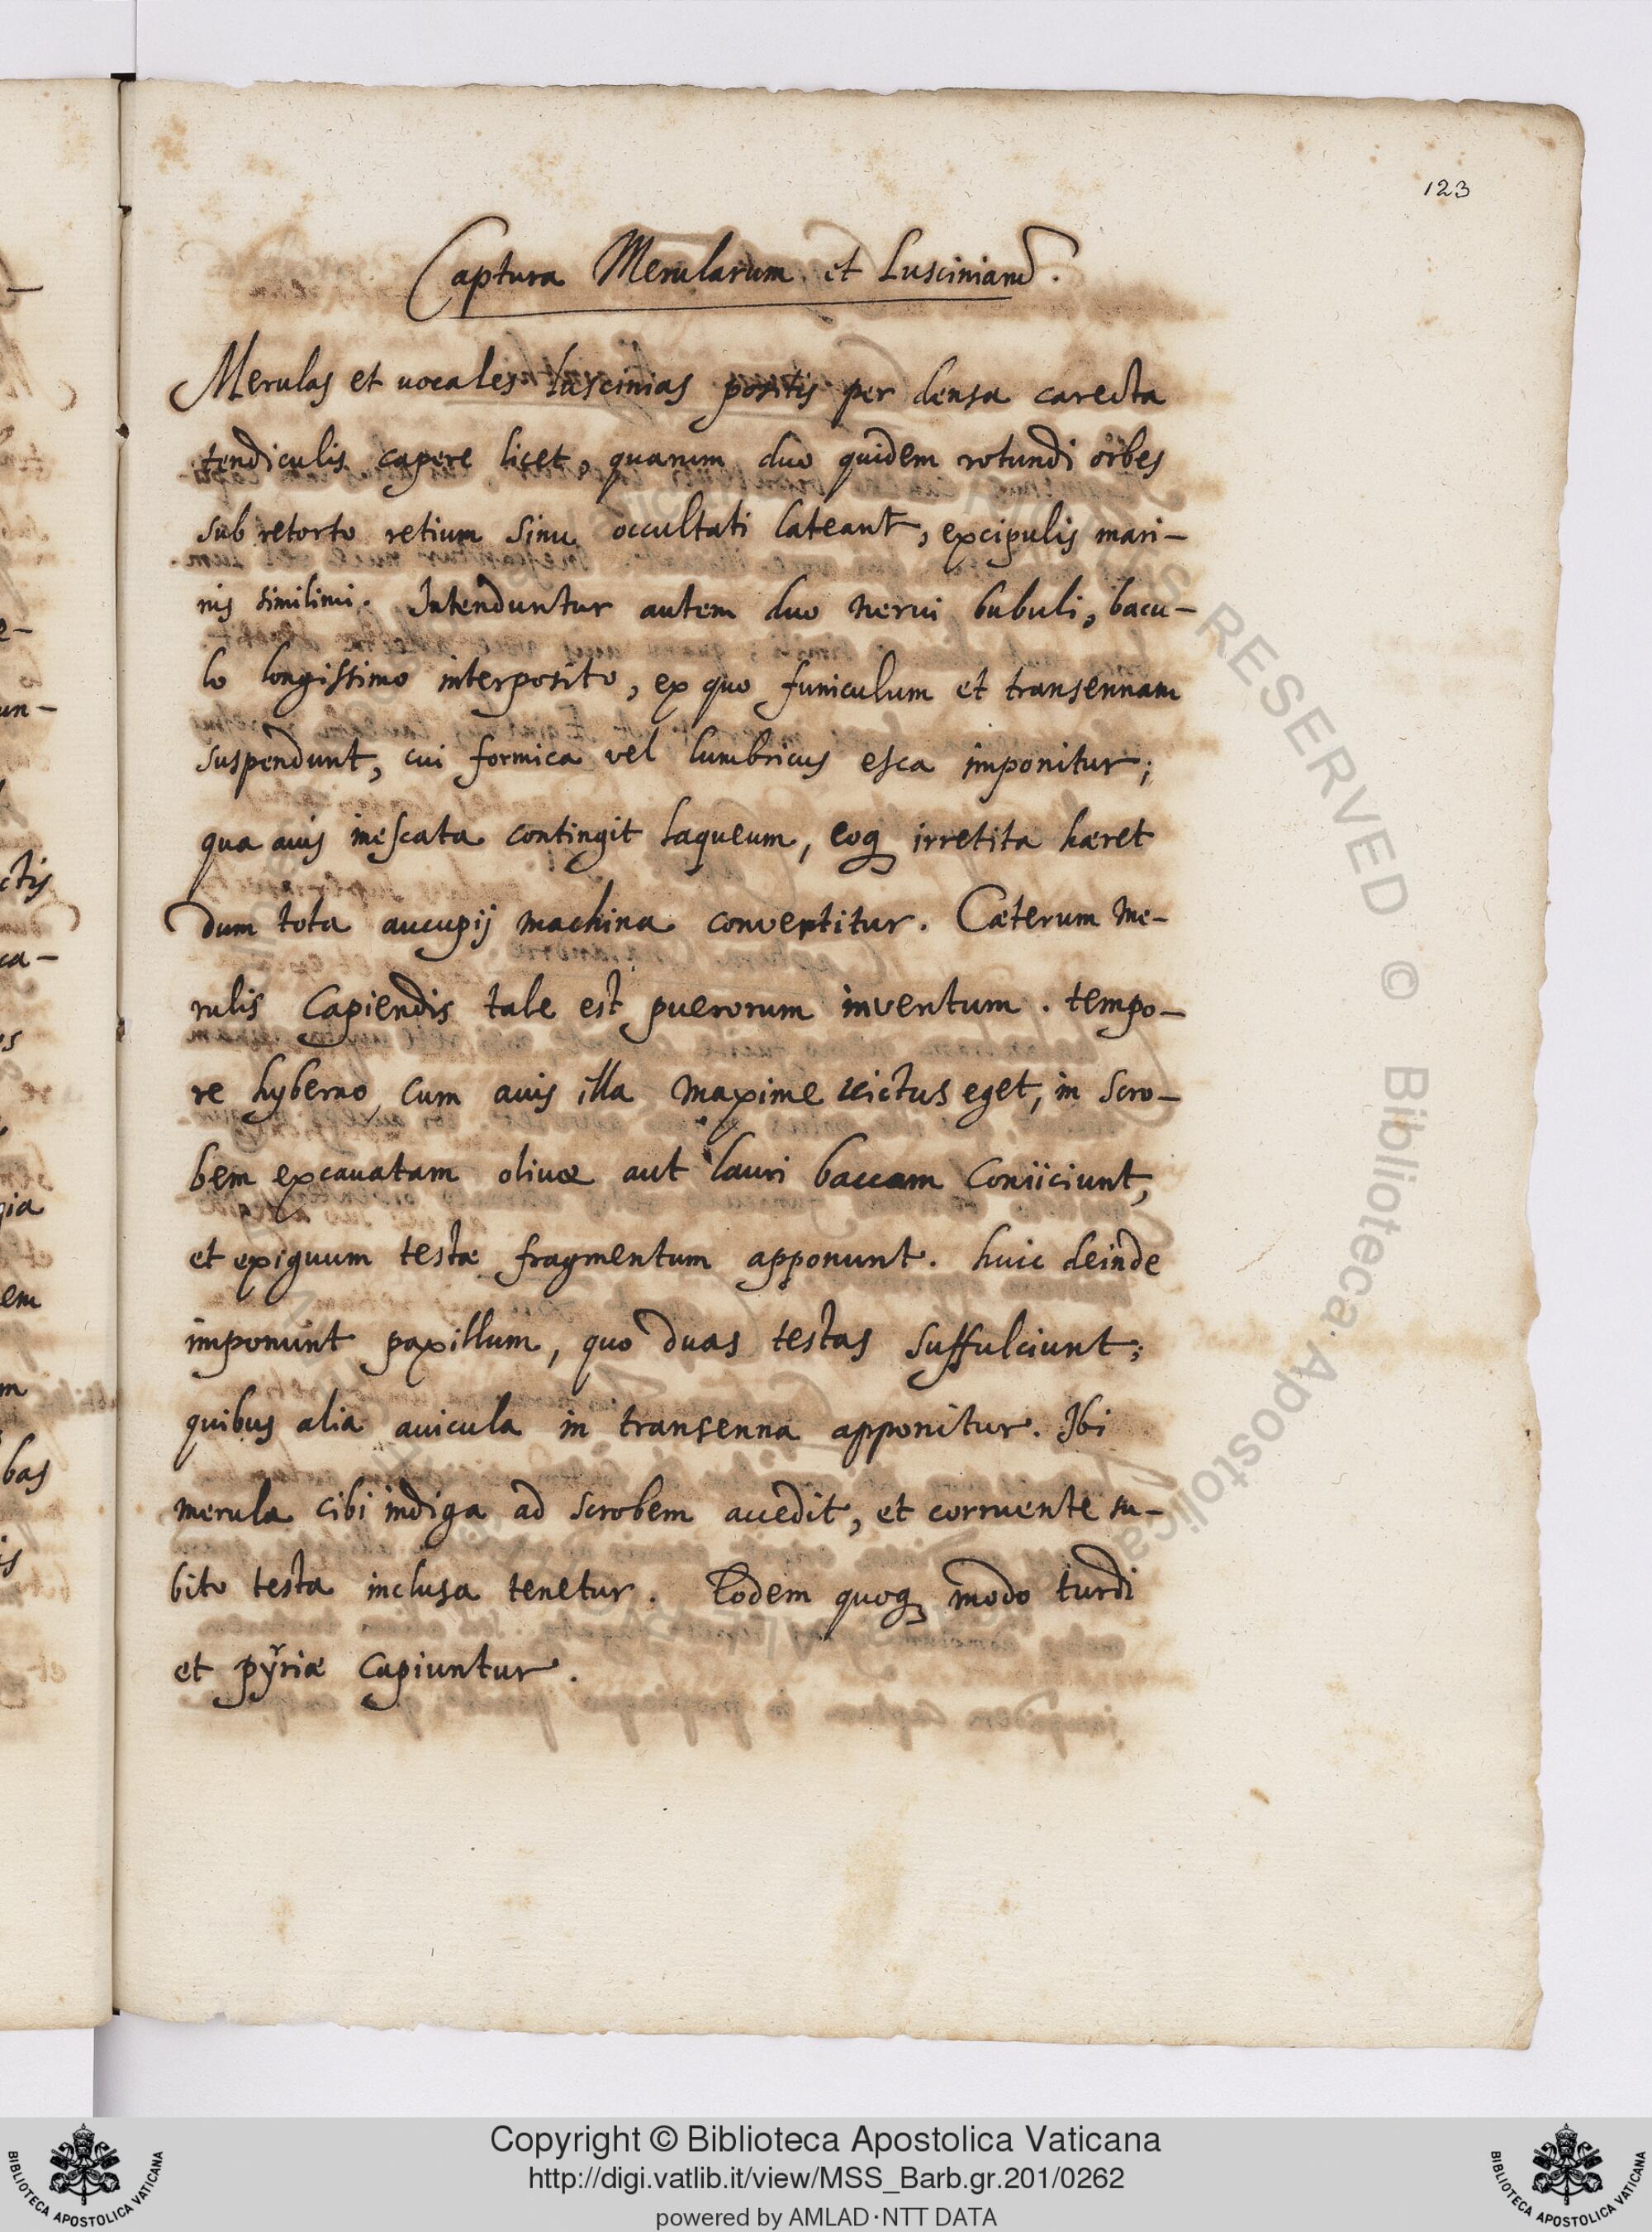 123
Captura Merularum et Lusciniarũ.
Merulas et uocales luscinias positis per densa carecta
tendiculis capere licet, quarum duo quidem rotundi orbes
sub retorto retium sinu occultati lateant, excipulis mari-
nis similimi. Intenduntur autem duo nerui bubuli, bacu-
lo longissimo interposito, ex quo funiculum et transennam
suspendunt, cui formica vel lumbricus esca imponitur;
qua auis inescata contingit laqueum, eoq irretita hæret
dum tota aucupij machina convertitur. Cæterum me-
rulis capiendis tale est puerorum inventum. tempo-
re hyberno, cum auis illa maxime uictus eget, in scro-
bem excauatam oliuæ aut lauri baccam coniiciunt,
et exiguum testæ fragmentum apponunt. huic deinde
imponunt paxillum, quo duas testas suffulciunt;
quibus alia auicula in transenna apponitur. Ibi
merula cibi indiga ad scrobem accedit, et corruente su-
bito testa inclusa tenetur. Eodem quoq modo turdi
et pyriæ capiuntur.
RESERVED © Biblioteca Apostolica
Copyright © Biblioteca Apostolica Vaticana
http://digi.vatlib.it/view/MSS_Barb.gr.201/0262
powered by AMLAD·NTT DATA
BIBLIOTECA APOSTOLICA VATICANA
BIBLIOTECA APOSTOLICA VATICANA